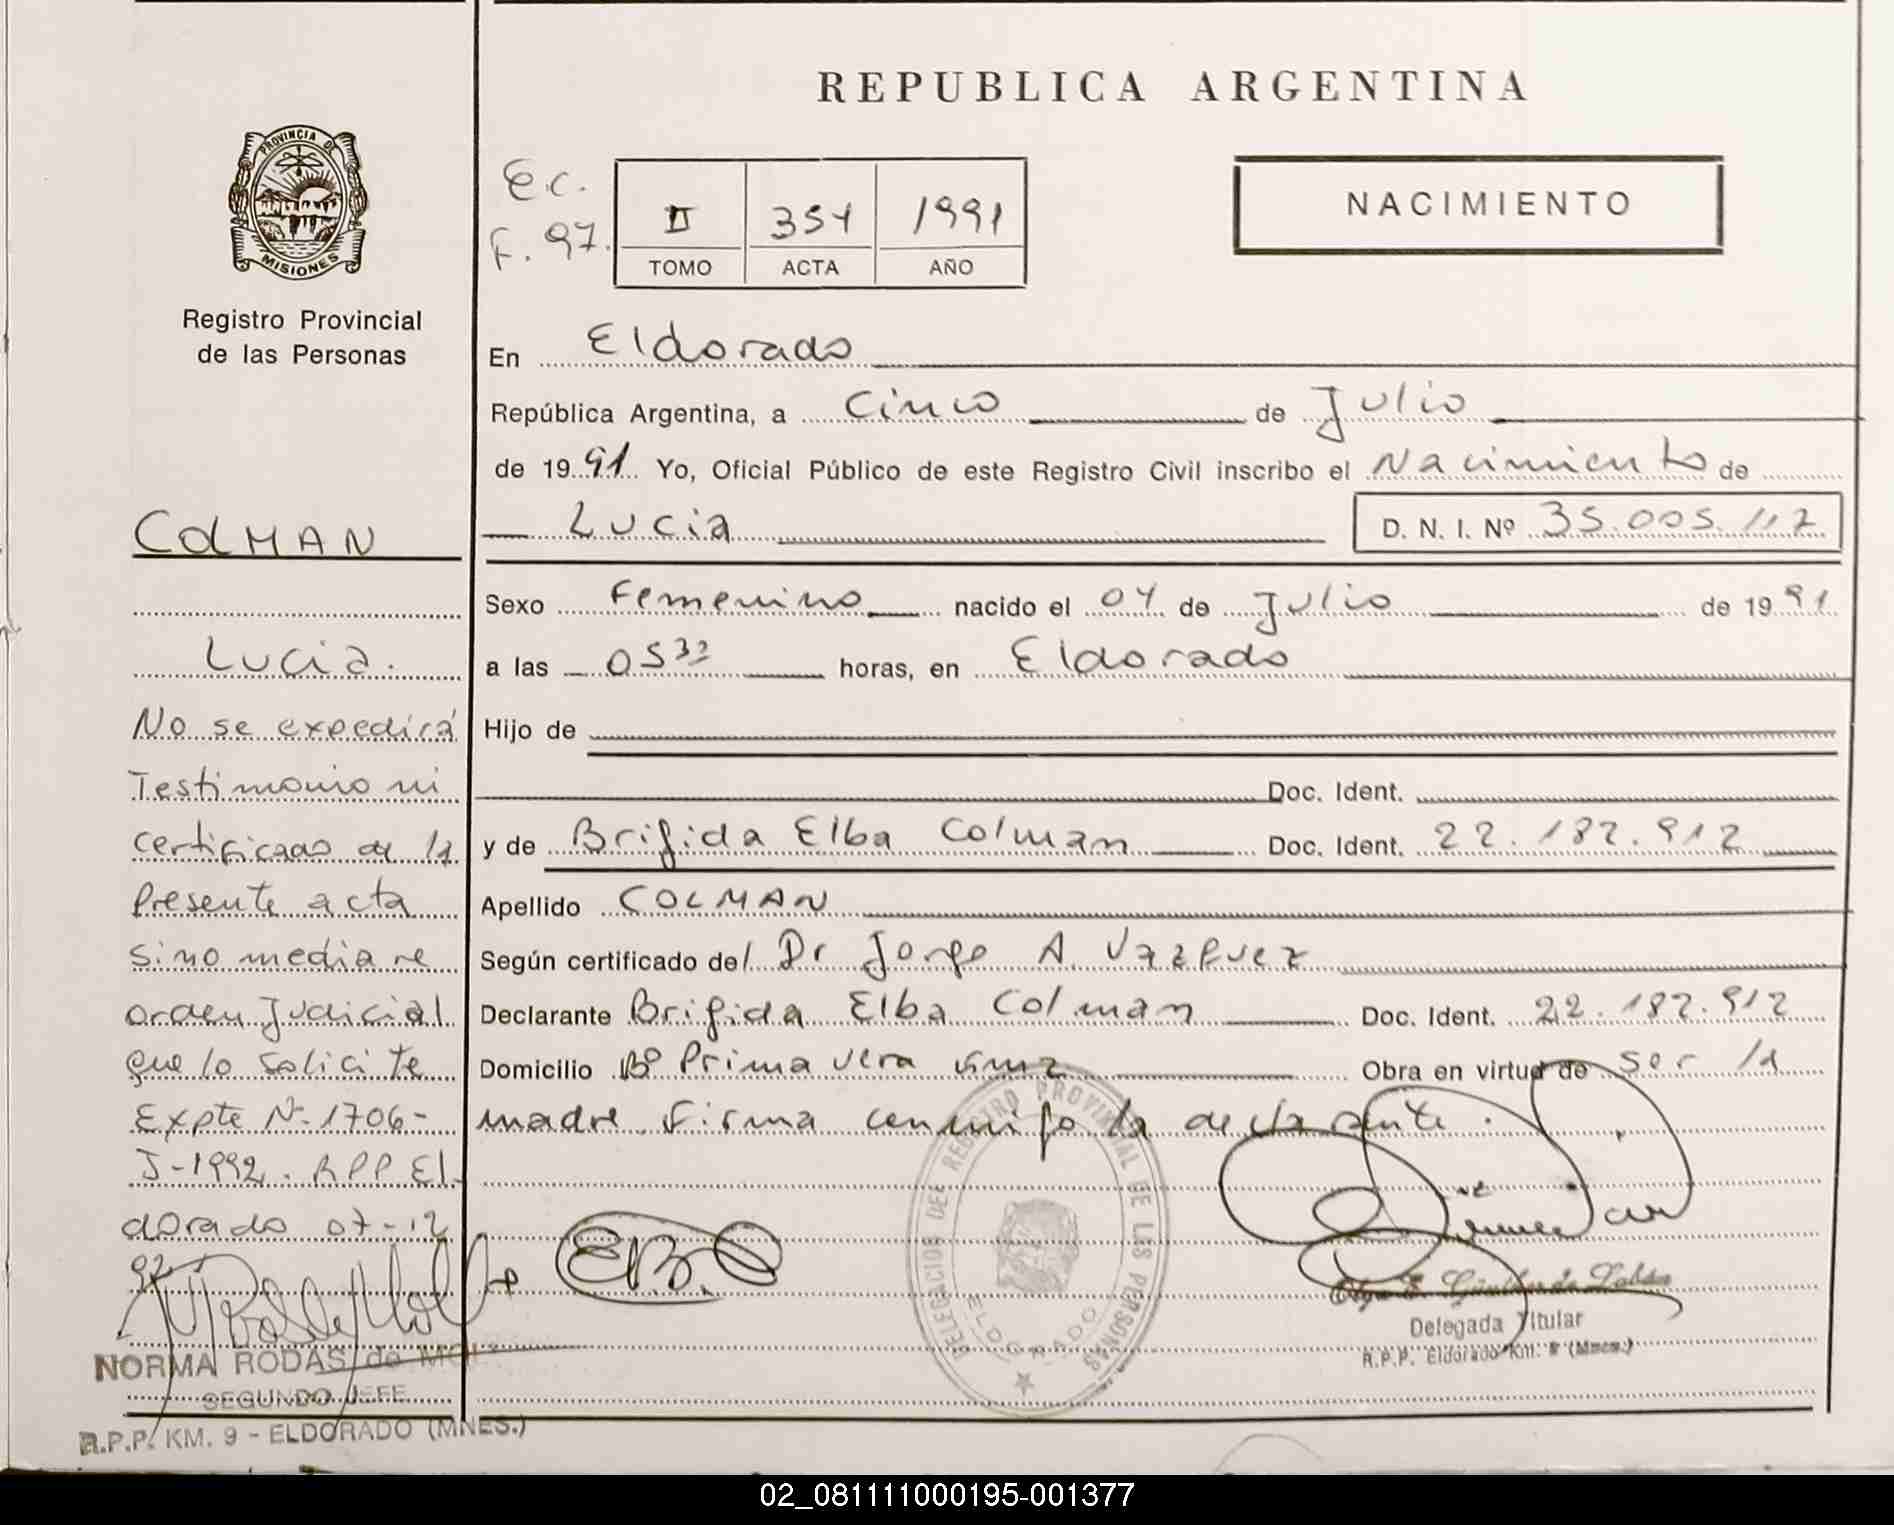 REPUBLICA ARGENTINA
PROVINCIA DE
MISIONES
Registro Provincial
de las Personas
E.C.
F. 97.
II 354 1991
TOMO ACTA AÑO
NACIMIENTO
En Eldorado
República Argentina, a Cinco de Julio
de 1991 Yo, Oficial Público de este Registro Civil inscribo el Nacimiento de
Lucia D. N. I. Nº 35.005.117
Sexo Femenino nacido el 04 de Julio de 1991
a las 05³⁰ horas, en Eldorado
Hijo de
Doc. Ident.
y de Brigida Elba Colman Doc. Ident. 22.182.912
Apellido COLMAN
Según certificado del Dr Jorge A. Vazquez
Declarante Brigida Elba Colman Doc. Ident. 22.182.912
Domicilio Bº Primavera Km2 Obra en virtud de ser la
madre. Firma conmigo la declarante.
COLMAN
Lucia.
No se expedirá
Testimonio ni
certificado de la
Presente acta
sino mediare
orden Judicial
que lo solicite
Expte N-1706-
J-1992. RPP El
dorado 07-12
92
NORMA RODAS de
SEGUNDO JEFE
R.P.P. KM. 9 - ELDORADO (MNES.)
E.B.C
DELEGACION DEL REGISTRO PROVINCIAL DE LAS PERSONAS
ELDORADO
Delegada Titular
R.P.P. Eldorado Km. 9 (Mnes.)
02_081111000195-001377